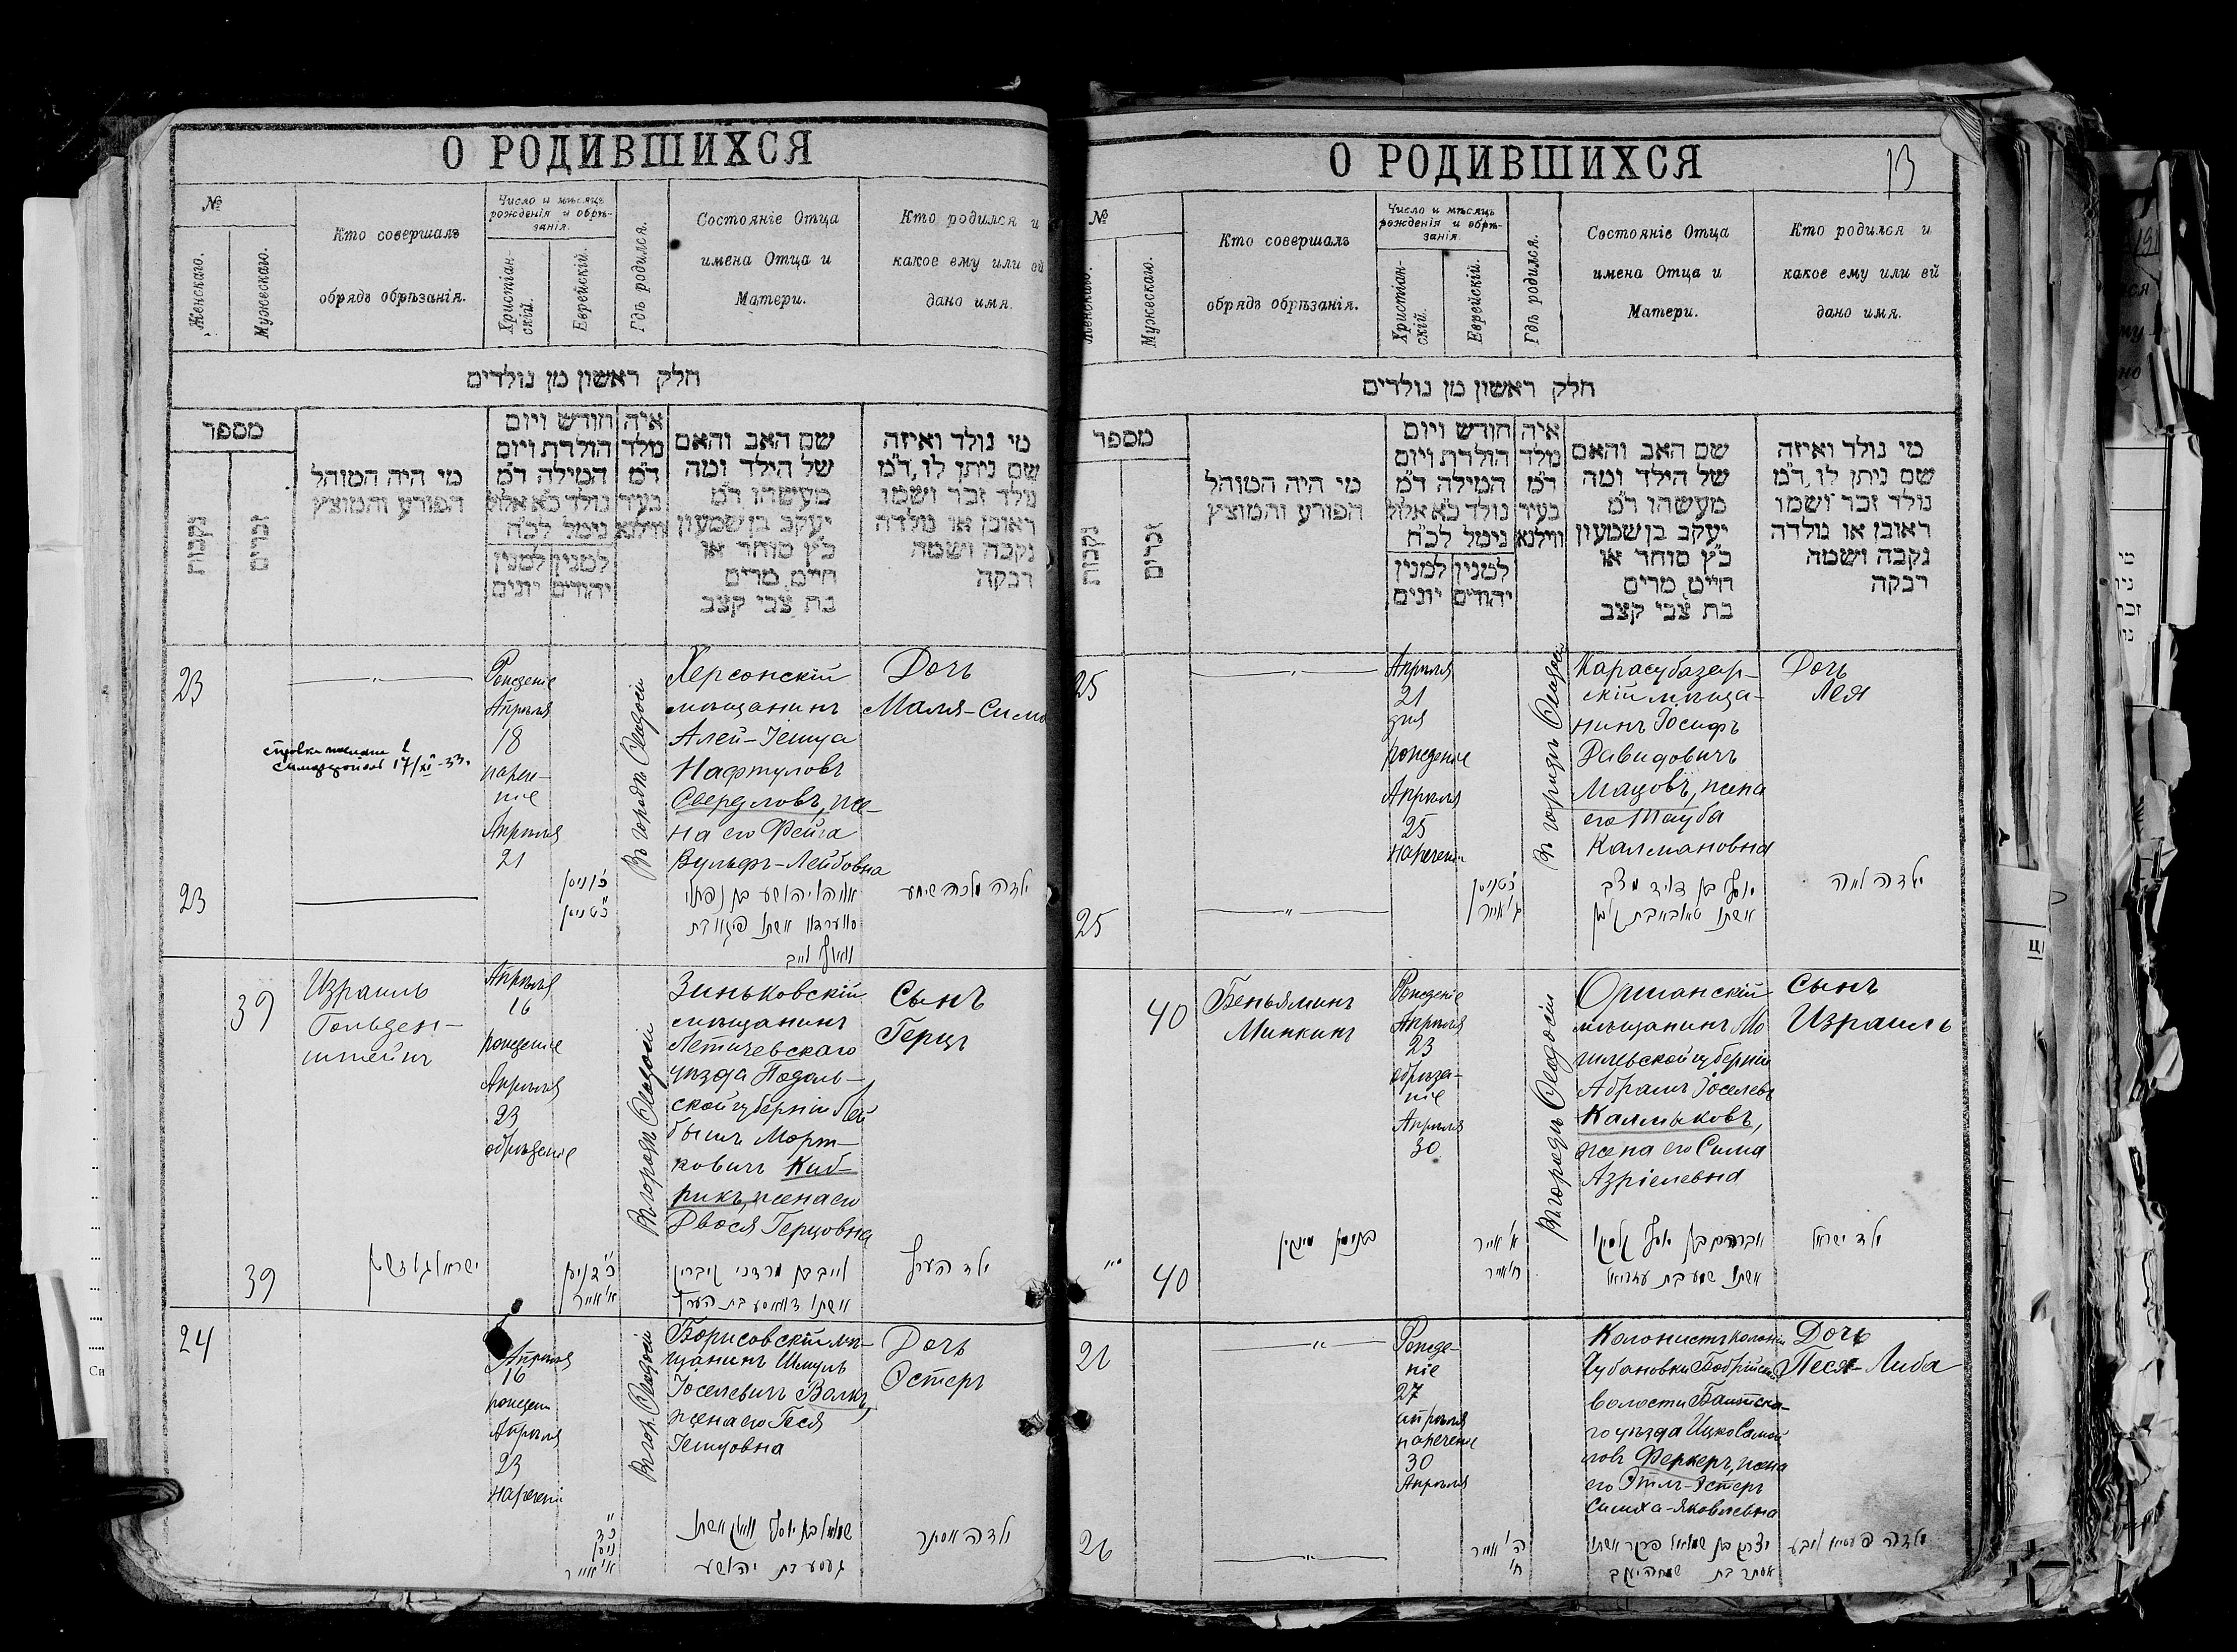 О РОДИВШИХСЯ
№
Женскаго.
Мужескаго.
Кто совершалъ
обрядъ обрѣзанія.
Число и мѣсяцъ
рожденія и обрѣ-
занія.
Христіан-
скій.
Еврейскій.
Гдѣ родился.
Состояніе Отца
имена Отца и
Матери.
Кто родился и
какое ему или ей
дано имя.
חלק ראשון מן נולדים
מספר
נקבות
זכרים
מי היה המוהל
הפורע והמוצץ
חודש ויום
הולדת ויום
המילה ד״מ
נולד כ״א אלול
נימל לכ״ח
למנין
יהודים
למנין
יונים
איה
מלד
ד״מ
בעיר
ווילנא
שם האב והאם
של הילד ומה
מעשהו ד״מ
יעקב בן שמעון
כ״ץ סוחר או
חייט מרים
בת צבי קצב
מי נולד ואיזה
שם ניתן לו, ד״מ
נולד זכר ושמו
ראובן או נולדה
נקבה ושמה
רבקה
23
Рожденіе
Апрѣля
18
нарен-
ніе
Апрѣля
21
Въ городѣ Ѳеодосіи
Херсонскій
мѣщанинъ
Алей-Іешуа
Нафтуловъ
Свердловъ, же-
на его Фейга
Вульфъ-Лейбовна
Дочь
Маля-Сима
17/XI-33.
23
כ״ט ניסן
39
Израиль
Гольден-
штейнъ
Апрѣля
16
рожденіе
Апрѣля
23
обрѣзаніе
Въ городѣ Ѳеодосіи
Зиньковскій
мѣщанинъ
Летичевскаго
уѣзда Подоль-
ской губерніи Лей
бышъ Морт-
ковичъ Киб-
рикъ, жена его
Двося Герцовна
Сынъ
Герцъ
39
לייב בן מרדכי קיבריק
ילד הערץ
24
Апрѣля
16
рожден
Апрѣля
23
наречені
Въ гор. Ѳеодосіи
Борисовскій мѣ-
щанинъ Шмуль
Іоселевичъ Волкъ,
жена его Геся
Іешуовна
Дочь
Эстеръ
כ״ד
ניסן
א׳ אייר
שמואל בן יוסף וואלק אשתו
געסע בת יהושע
ילדה אסתר
О РОДИВШИХСЯ
13
№
Женскаго.
Мужескаго.
Кто совершалъ
обрядъ обрѣзанія.
Число и мѣсяцъ
рожденія и обрѣ-
занія.
Христіан-
скій.
Еврейскій.
Гдѣ родился.
Состояніе Отца
имена Отца и
Матери.
Кто родился и
какое ему или ей
дано имя.
חלק ראשון מן נולדים
מספר
נקבות
זכרים
מי היה המוהל
הפורע והמוצץ
חודש ויום
הולדת ויום
המילה ד״מ
נולד כ״א אלול
נימל לכ״ח
למנין
יהודים
למנין
יונים
איה
מלד
ד״מ
בעיר
ווילנא
שם האב והאם
של הילד ומה
מעשהו ד״מ
יעקב בן שמעון
כ״ץ סוחר או
חייט מרים
בת צבי קצב
מי נולד ואיזה
שם ניתן לו, ד״מ
נולד זכר ושמו
ראובן או נולדה
נקבה ושמה
רבקה
25
Апрѣля
21
дня
рожденіе
Апрѣля
25
наречен
Въ городѣ Ѳеодосіи
Карасубазар-
скій мѣща-
нинъ Іосифъ
Давидовичъ
Мацовъ, жена
его Тауба
Калмановна
Дочь
Лея
25
כ״ט ניסן
ג׳ אייר
ילדה לאה
40
Беньяминъ
Минкинъ
Рожденіе
Апрѣля
23
обрѣза-
ніе
Апрѣля
30
Въ городѣ Ѳеодосіи
Оршанскій
мѣщанинъ Мо
гилевской губерніи
Абрамъ Іоселевъ
Калмыковъ,
жена его Сима
Азріелевна
Сынъ
Израиль
40
בנימין מינקין
א אייר
ח׳ אייר
אשתו סימע בת עזריאל
ילד ישראל
21
Рожде-
ніе
27
апрѣля
наречені
30
Апрѣля
Колонистъ колоніи
волости Балтска-
го уѣзда Ицко Самой
ловъ Феркеръ, жена
его Этль-Эстеръ
Симха-Яковлевна
Дочь
Песя-Либа
26
ה׳ אייר
ח׳
יצחק בן שמואל פערקער אשתו
אסתר בת שמחה יעקב
ילדה פעסיא ליבע